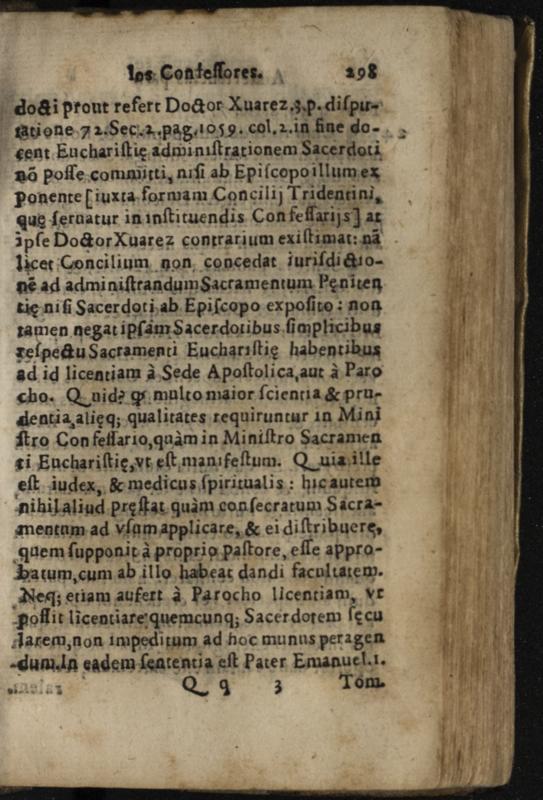 los Confessores. 298
docti prout refert Doctor Xuarez.3.p. dispu-
tatione 72.Sec.2.pag.1059. col.2.in fine do-
cent Eucharistię administrationem Sacerdoti
nõ posse committi, nisi ab Episcopo illum ex
ponente [iuxta formam Concilij Tridentini,
quę seruatur in instituendis Confessarijs] at
ipse Doctor Xuarez contrarium existimat: nã
licet Concilium non concedat iurisdictio-
nẽ ad administrandum Sacramentum Pęniten
tię nisi Sacerdoti ab Episcopo exposito: non
tamen negat ipsam Sacerdotibus simplicibus
respectu Sacramenti Eucharistię habentibus
ad id licentiam à Sede Apostolica, aut à Paro
cho. Quid? ꝙ multo maior scientia & pru-
dentia, alięq; qualitates requiruntur in Mini
stro Confessario, quàm in Ministro Sacramen
ti Eucharistię, vt est manifestum. Quia ille
est iudex, & medicus spiritualis: hic autem
nihil aliud pręstat quàm consecratum Sacra-
mentum ad vsum applicare, & ei distribuere,
quem supponit à proprio pastore, esse appro-
batum, cum ab illo habeat dandi facultatem.
Neq; etiam aufert à Parocho licentiam, vt
possit licentiare quemcunq; Sacerdotem sęcu
larem, non impeditum ad hoc munus peragen
dum. In eadem sententia est Pater Emanuel. 1.
Q q 3 Tom.